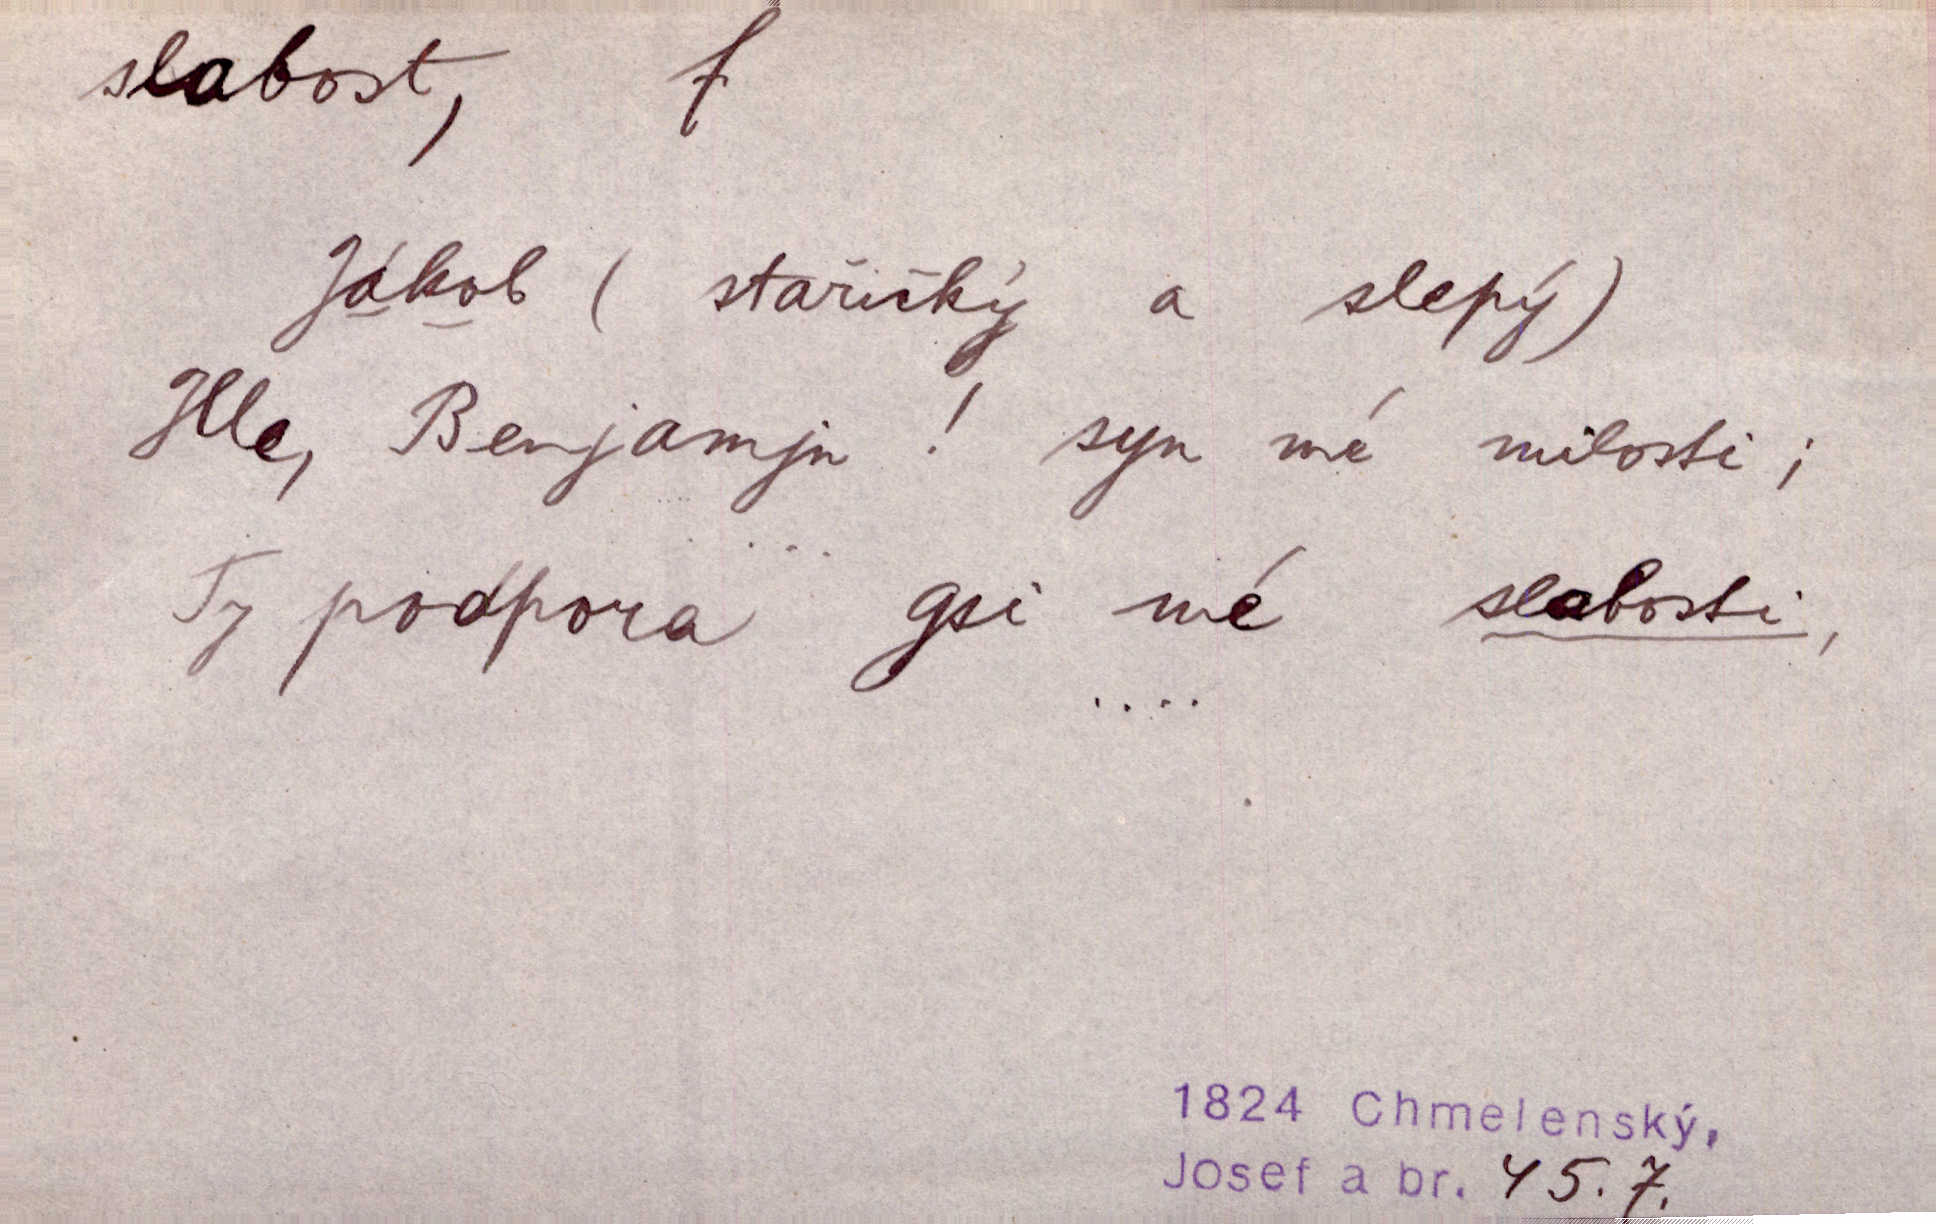 slabost, f
Jákob ( stařičký a slepý)
Hle, Benjamjn ! syn mé milosti ;
Ty podpora gsi mé slabosti,
....
1824 Chmelenský,
Josef a br. 45.7.